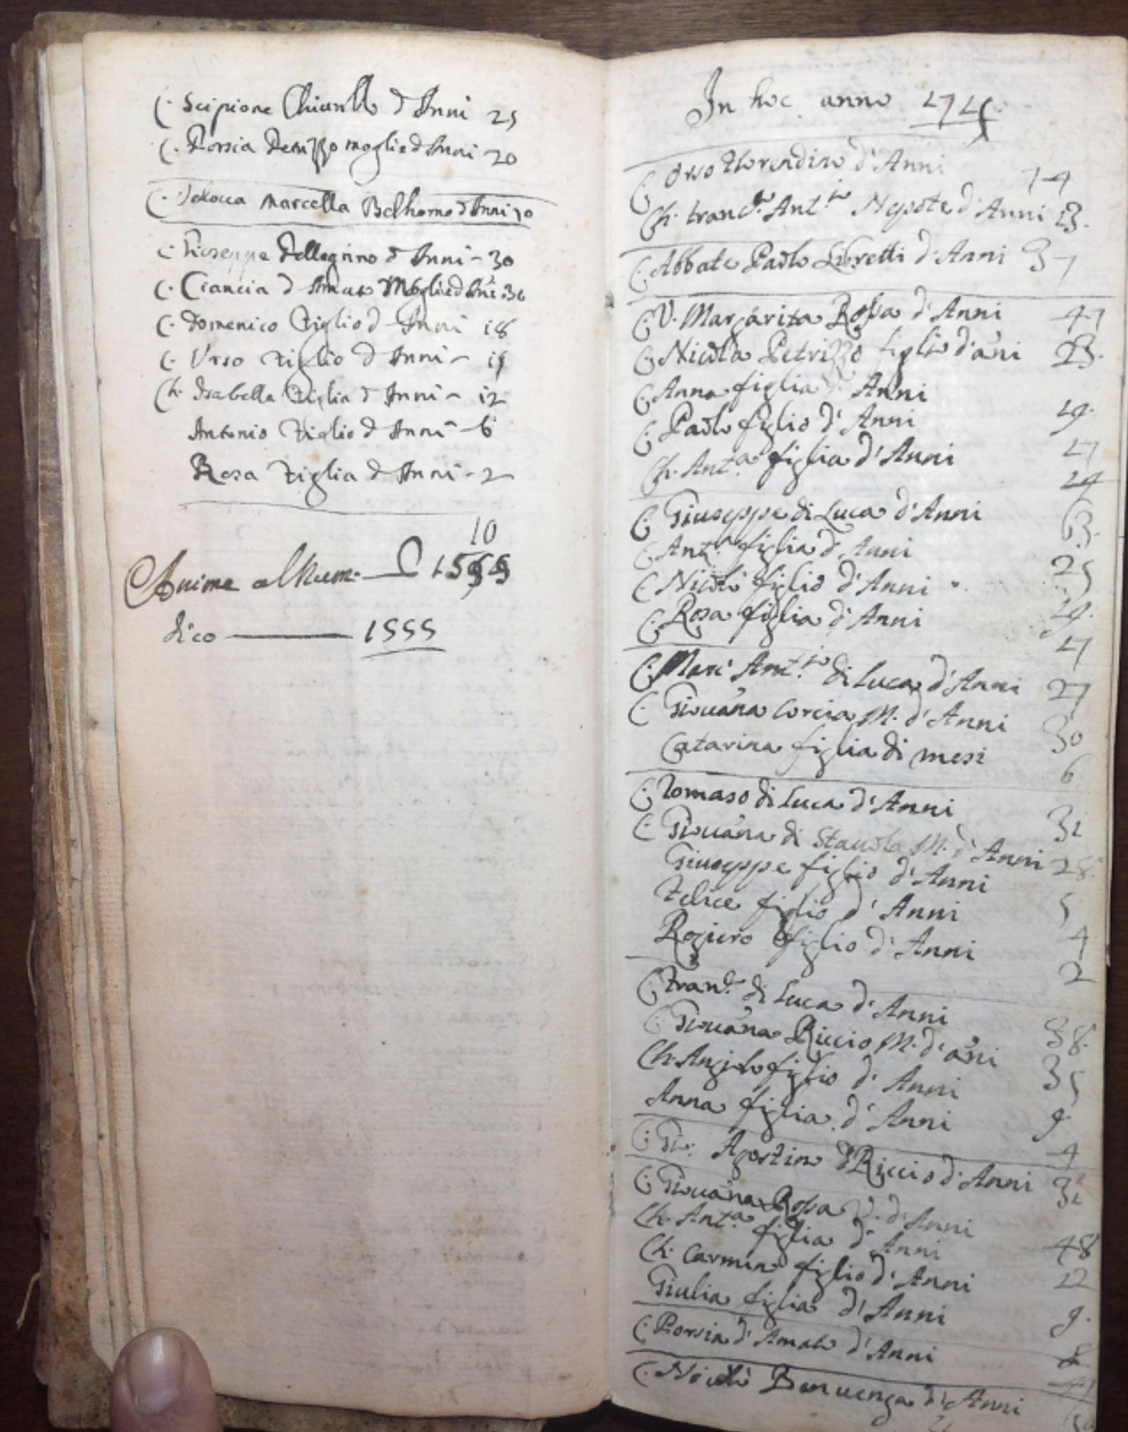 C. Scipione Chiarello d Anni 25
C. Porsia Petrizzo moglie d Anni 20
C. Vedova Marcella Belhomo d Anni 70
C. Gioseppe Pellegrino d Anni - 30
C. Ciancia d Amato Moglie d Anni 36
C. Domenico Figlio d Anni 18
C. Urso Figlio d Anni - 15
Ch. Isabella Figlia d Anni - 12
Antonio Figlio d Anni - 6
Rosa Figlia d Anni - 2
10
Anime al Num.
dico 1555
In hoc anno
C. Orso Florendino d'Anni 74
Ch. Franc.o Ant.io Nepote d'Anni 13.
C. Abbate Paolo Libretti d'Anni 37
C. V. Margarita Rossa d'Anni 47
C. Nicola Petrizzo figlio d'ani 23.
C. Anna figlia d'Anni 19.
C. Paolo figlio d'Anni 17
Ch. Ant.a figlia d'Anni 14
C. Giuseppe di Luca d'Anni 63.
C. Ant.a figlia d'Anni 25
C. Nicolò figlio d'Anni 19.
C. Rosa figlia d'Anni 17
C. Marc' Ant.io di Luca d'Anni 27
C. Giouana Corcia M. d'Anni 30
Catarina figlia di mesi 6
C. Tomaso di Luca d'Anni 31
C. Giouana di Stauola M. d'Anni 28.
Giuseppe figlio d'Anni 5
Felice figlio d'Anni 4
Rogiero figlio d'Anni 2
C. Fran.o di Luca d'Anni 38.
C. Giouana Riccio M. d'ani 35
Ch. Angelo figlio d'Anni 9.
Anna figlia d'Anni 4
C. Gio: Agostino d Riccio d'Anni 31
C. Giouana Rossa V. d'Anni 48
Ch. Ant.a figlia d'Anni 12
Ch. Carmino figlio d'Anni 9.
Giulia figlia d'Anni
C. Porsia d'Amato d'Anni
C. Nicolò Benuenga d'Anni